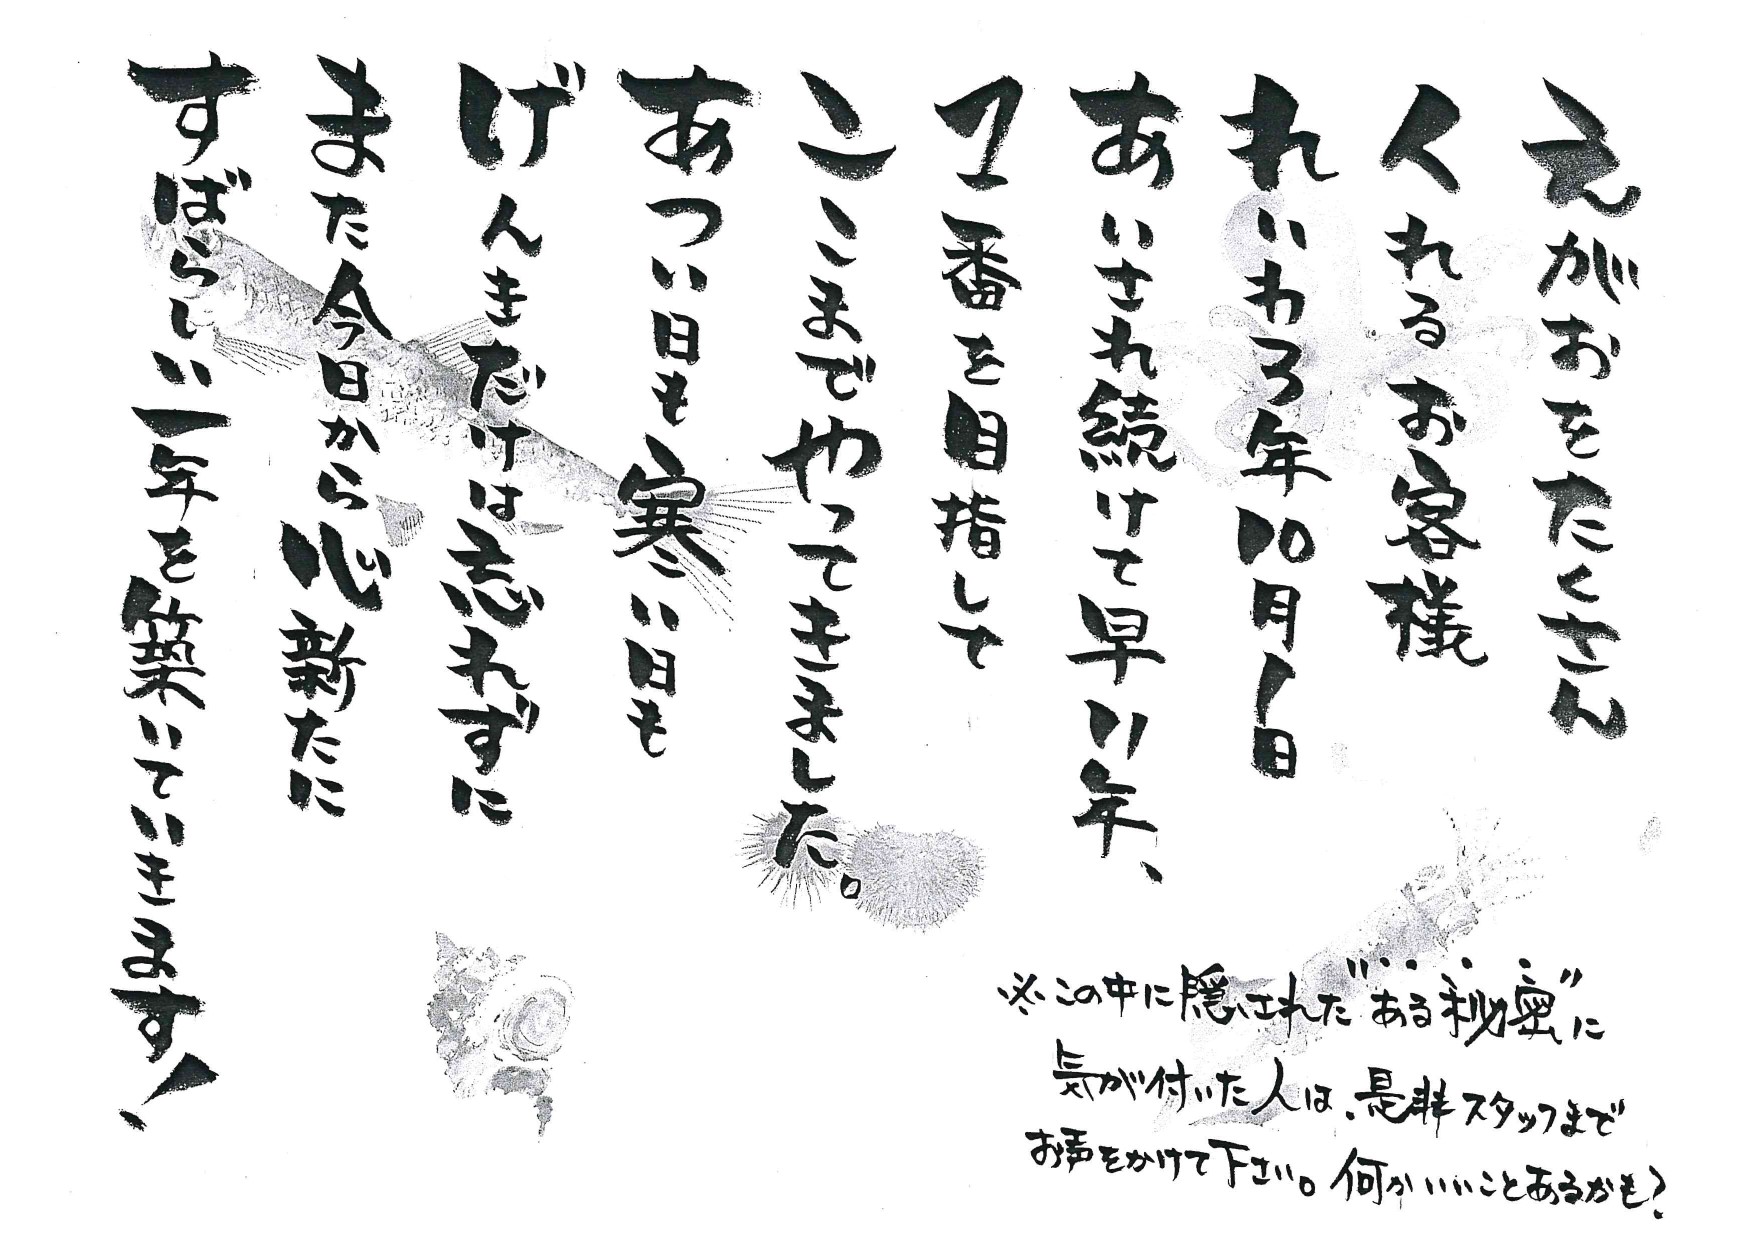 えがおをたくさん
くれるお客様
れいわ3年10月1日
あいされ続けて早11年、
1番を目指して
ここまでやってきました。
あつい日も寒い日も
げんきだけは忘れずに
また今日から心新たに
すばらしい一年を築いていきます!
※この中に隠された"ある秘密"に
気が付いた人は、是非スタッフまで
お声をかけて下さい。何かいいことあるかも?